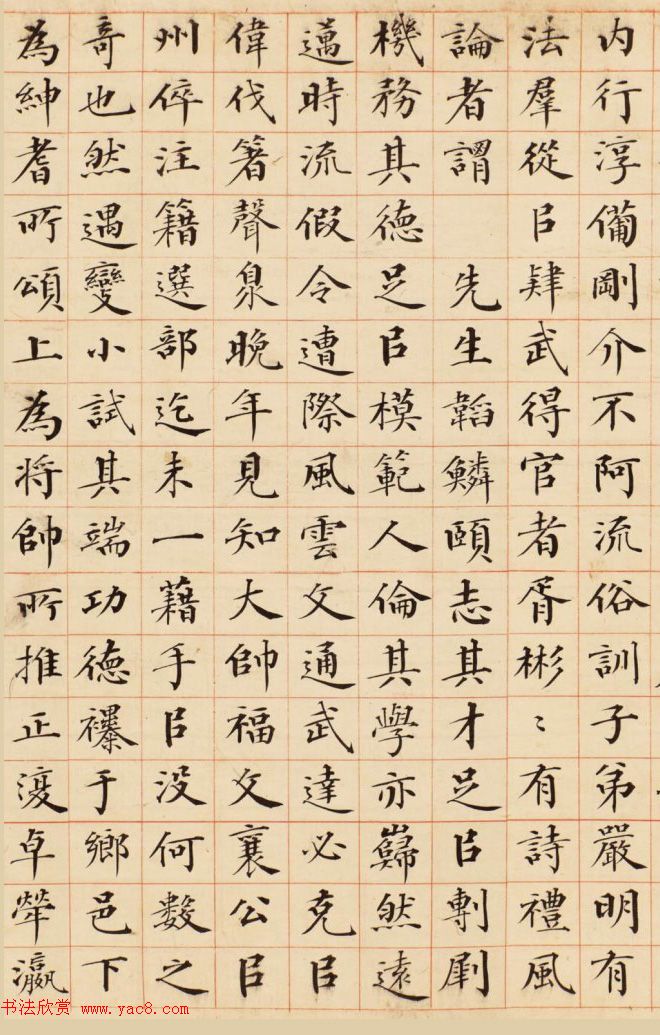 内行淳備剛介不阿流俗訓子弟嚴明有
法羣從㠯肄武得官者胥彬〻有詩禮風
論者謂 先生韜鱗頤志其才足㠯剸劇
機務其德足㠯模範人倫其學亦巋然遠
邁時流假令遭際風雲文通武達必克㠯
偉伐箸聲臮晚年見知大帥福文襄公㠯
州倅注籍選部迄未一藉手㠯没何數之
奇也然遇變小試其端功德襮于鄉邑下
為紳耆所頌上為將帥所推正復卓犖瀛
书法欣赏 www.yac8.com